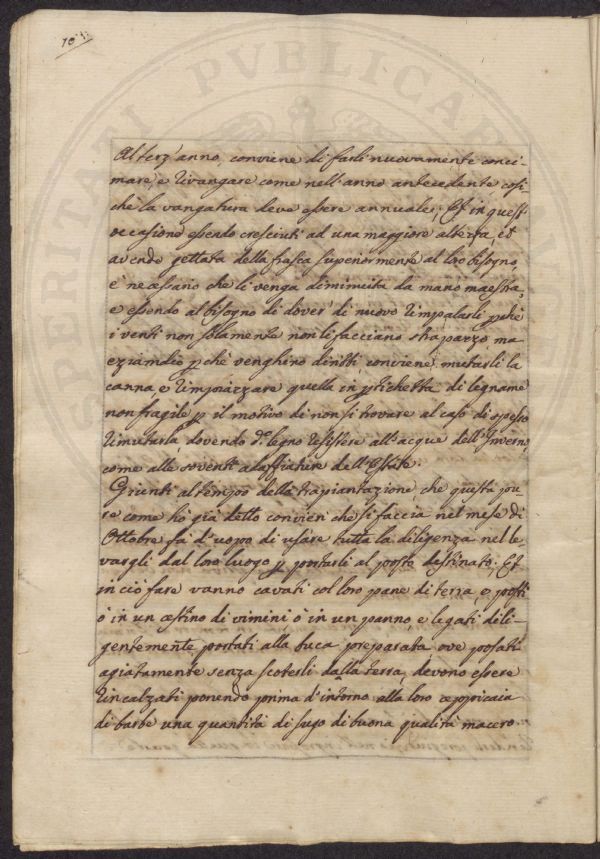 10
PERITI PVBLICAE
Al terz'anno, conviene di farli nuovamente conci-
mare, e rivangare come nell'anno antecedente, cosi
chè la vangatura deve essere annuale; Et in quest'
occasione essendo cresciuti ad una maggiore altezza, et
avendo gettata della frasca superiormente al loro bisogno,
è necessario che li venga diminuita da mano maestra,
e essendo al bisogno di dover di nuovo rimpalarli p chè
i venti non solamente non li facciano strapazzo, ma
eziandio p chè venghino diritti, conviene mutarli la
canna, e rimpiazzare quella in p tichetta di legname
non fragile p il motivo di non si trovare al caso di spesso
rimutarla, dovendo d.o legno resistere all'acque dell'Inverno,
come alle soventi adaffiature dell'Estate.
Giunti al tempo della trapiantazione, che questa pu-
re come hò già detto convien che si faccia nel mese di
Ottobre fà d'uopo di usare tutta la diligenza nel le-
vargli dal loro luogo p portarli al posto destinato; Et
in ciò fare vanno cavati col loro pane di terra, e posti
ò in un cestino di vimini, ò in un panno, e legati dili-
gentemente, portati alla buca preparata ove posati
agiatamente senza scoterli dalla terra, devono essere
rincalzati ponendo prima d'intorno alla loro ceppicaia
di barbe una quantità di sugo di buona qualità macero